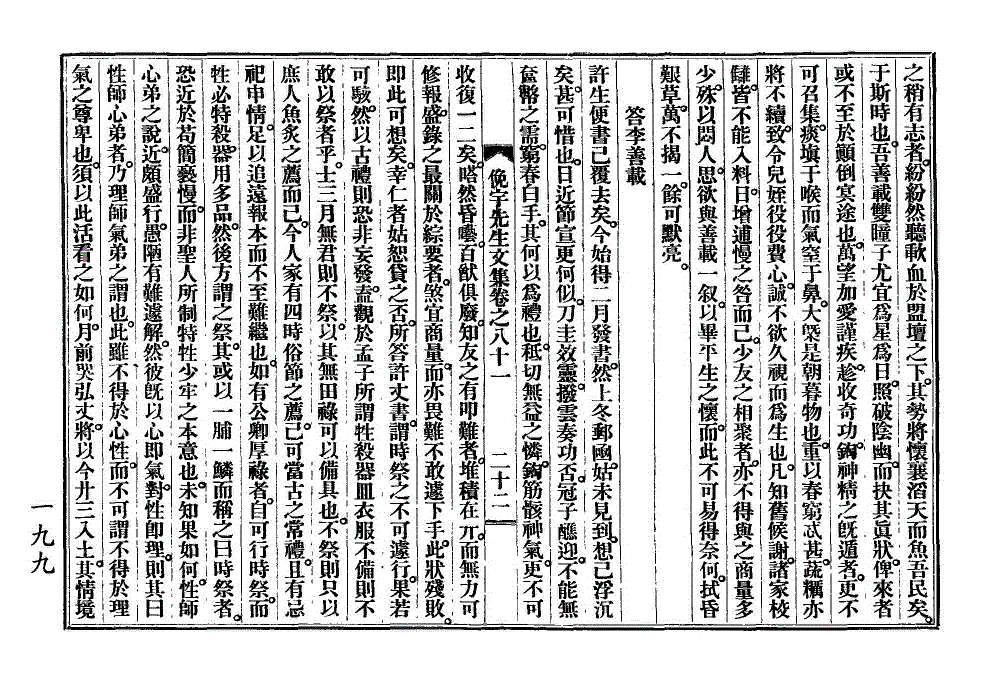 之稍有志者。紛紛然聽歃血於盟壇之下。其勢將懷襄滔天而魚吾民矣。
于斯時也。吾善載雙瞳子尤宜爲星爲日。照破陰幽而抉其眞狀。俾來者
或不至於顚倒冥途也。萬望加愛謹疾。趁收奇功。鉤神精之旣遁者。更不
可召集。痰塡于喉而氣窒于鼻。大槩是朝暮物也。重以春窮忒甚。蔬糲亦
將不續。致令兒姪役役費心。誠不欲久視而爲生也。凡知舊候謝。諸家校
讎。皆不能入料。日增逋慢之咎而已。少友之相聚者。亦不得與之商量多
少。殊以悶人。思欲與善載一叙。以畢平生之懷。而此不可易得奈何。拭昏
艱草。萬不揭一。餘可默亮。
答李善載
許生便書已覆去矣。今始得二月發書。然上冬郵凾。姑未見到。想已浮沉
矣。甚可惜也。日近節宣更何似。刀圭效靈。撥雲奏功否。冠子醮迎。不能無
奩幣之需。窮春白手。其何以爲禮也。秪切無益之憐。鉤筋骸神氣。更不可
俛宇先生文集卷之八十一 二十二
收復一二矣。嗒然昏囈。百猷俱廢。知友之有叩難者。堆積在丌。而無力可
修報。盛錄之最關於綜要者。煞宜商量。而亦畏難不敢遽下手。此狀殘敗。
即此可想矣。幸仁者姑恕貸之否。所答許丈書。謂時祭之不可遽行。果若
可駭。然以古禮則恐非妄發。盍觀於孟子所謂牲殺器皿衣服不備則不
敢以祭者乎。士三月無君則不祭。以其無田祿可以備具也。不祭則只以
庶人魚炙之薦而已。今人家有四時俗節之薦。已可當古之常禮。且有忌
祀申情。足以追遠報本而不至難繼也。如有公卿厚祿者。自可行時祭。而
牲必特殺。器用多品。然後方謂之祭。其或以一脯一鱗而稱之曰時祭者。
恐近於苟簡褻慢。而非聖人所制特牲少牢之本意也。未知果如何。性師
心弟之說。近頗盛行。愚陋有難遽解。然彼旣以心即氣對性即理。則其曰
性師心弟者。乃理師氣弟之謂也。此雖不得於心性。而不可謂不得於理
氣之尊卑也。須以此活看之如何。月前哭弘丈。將以今廿三入土。其情境
一九九